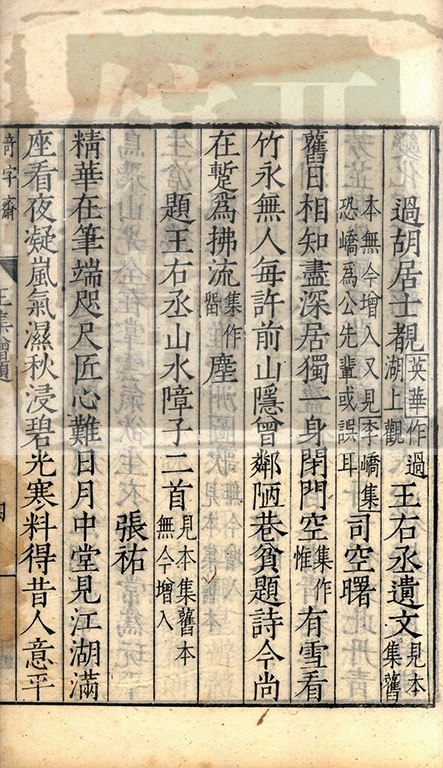 過胡居士覩英華作過湖上觀王右丞遺文見本集舊
本無今增入又見李嶠集恐嶠爲公先輩或誤耳司空曙
舊日相知盡深居獨一身閉門空集作惟有雪看
竹永無人每許前山隱曾鄰陋巷貧題詩今尚
在蹔爲拂流集作畱塵
題王右丞山水障子二首見本集舊本無今增入
張祐
精華在筆端咫尺匠心難日月中堂見江湖滿
座看夜凝嵐氣濕秋浸碧光寒料得昔人意平
奇字齋